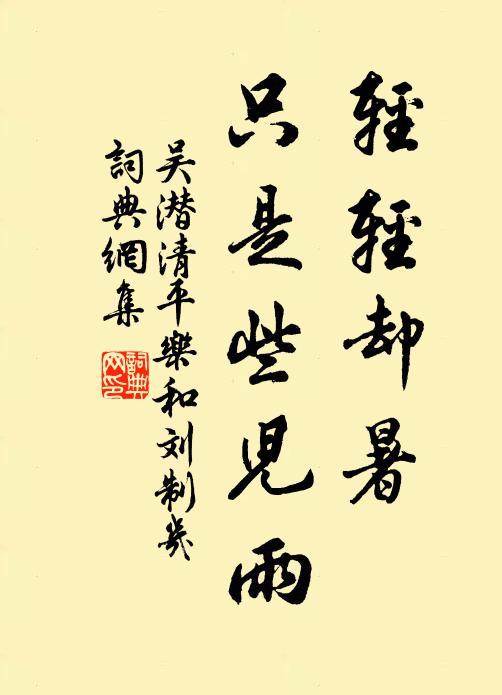 輕輕却暑
只是些兒雨
吴潜清平樂和刘制幾
詞典網集
詞典网印